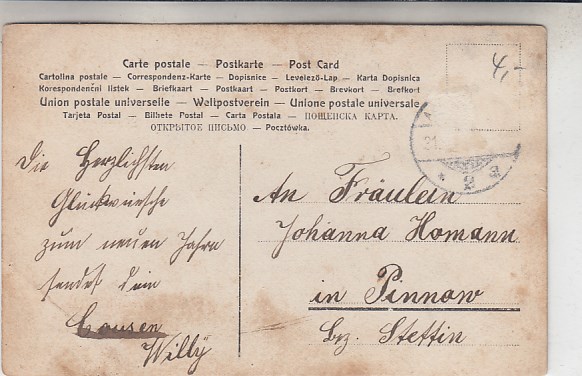 Carte postale — Postkarte — Post Card
Cartolina postale — Correspondenz-Karte — Dopisnice — Levelező-Lap — Karta Dopisnica
Korespondenční listek — Briefkaart — Postkaart — Postkort — Brevkort — Brefkort
Union postale universelle — Weltpostverein — Unione postale universale
Tarjeta Postal — Bilhete Postal — Carta Postala — ПОЩЕНСКА КАРТА.
ОТКРЫТОЕ ПИСЬМО — Pocztówka.
4,-
31.
* 2 a
Die Herzlichsten
Glückwünsche
zum neuen Jahre
sendet dein
Cousen
Willÿ
An Fräulein
Johanna Homann
in Pinnow
bz. Stettin